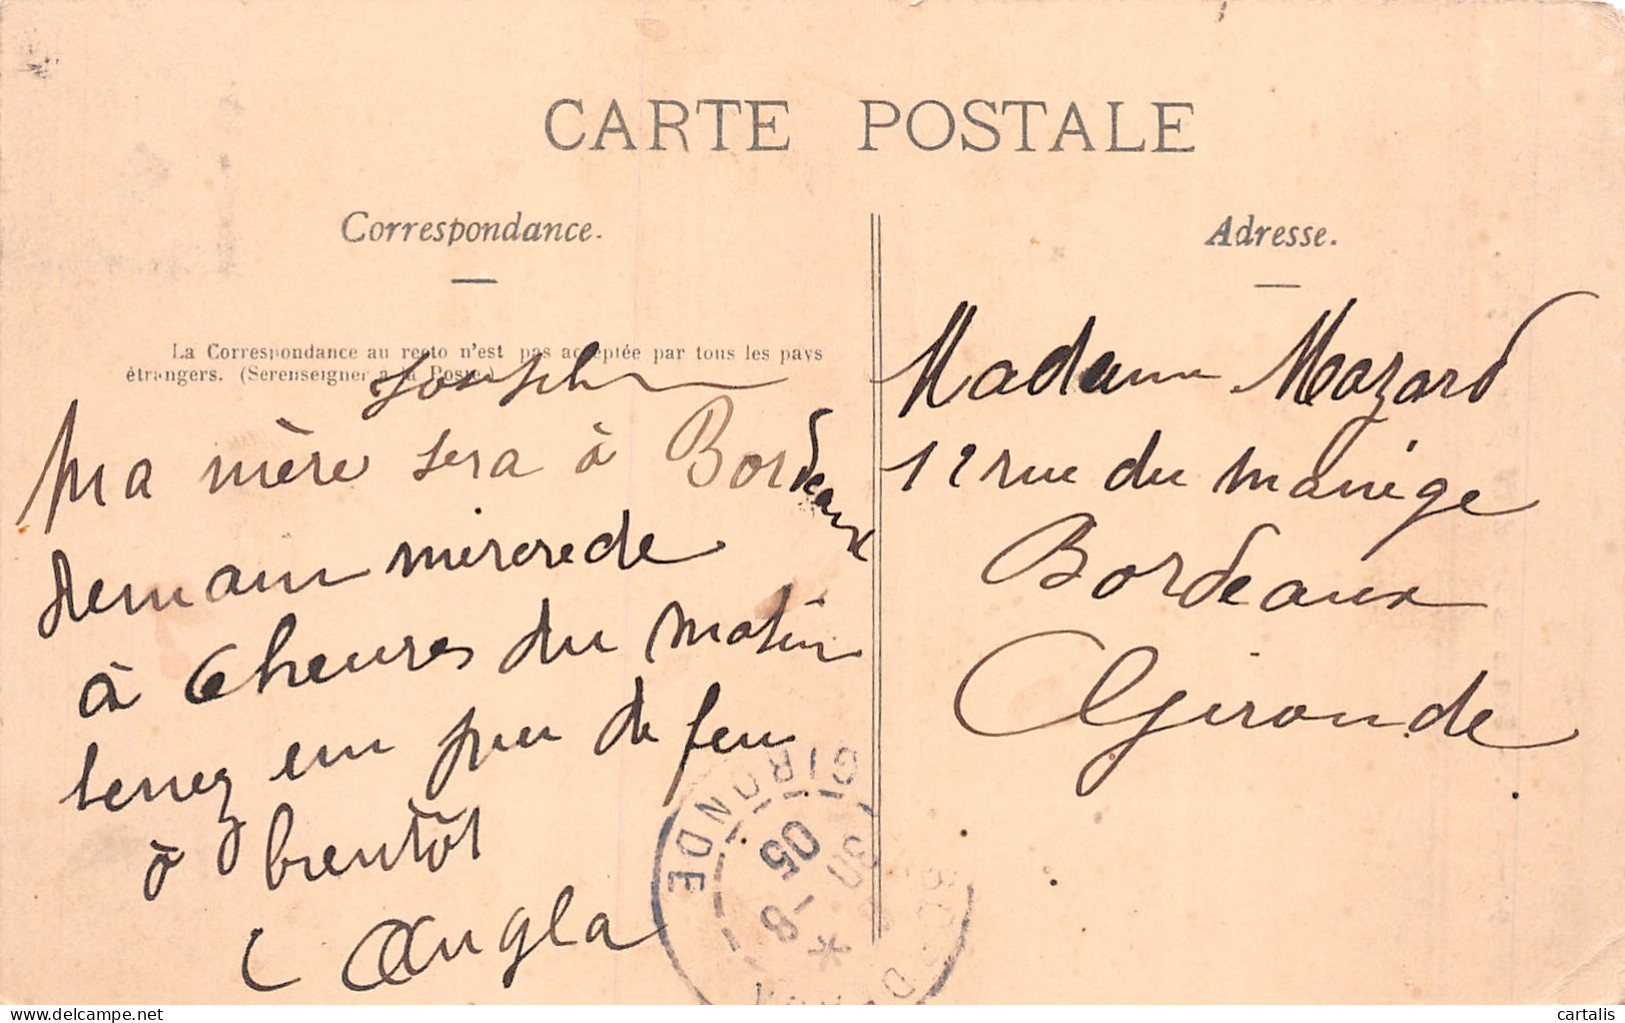 CARTE POSTALE
Correspondance.
La Correspondance au recto n'est pas acceptée par tous les pays
étrangers. (Se renseigner à la Poste.)
Joseph
Ma mère sera à Bordeaux
demain mercrede
à 6 heures du matin
tenez un peu de feu
à bientôt
Angla
Adresse.
Madame Mazard
12 rue du manège
Bordeaux
Gironde
GIRONDE
8 - 05
www.delcampe.net
cartalis